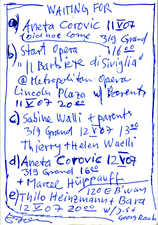 WAITING FOR
a) Aneta Corovic 11 V 07
(did not come) 319 Grand
b) Start Opera 16 00
"Il Barbiere di Siviglia"
@ Metropolitan Opera
Lincoln Plaza w/ Parents
11 V 07 20 00
c) Sabine Walli + parents
319 Grand 12 V 07 13 00
Thierry + Helen Waelli
d) Aneta Corovic 12 V 07
319 Grand 16 00
+ Marcel Hüppauff
e) 120 E B'way
Thilo Heinzmann + Bara
12 V 07 20 00
Georg